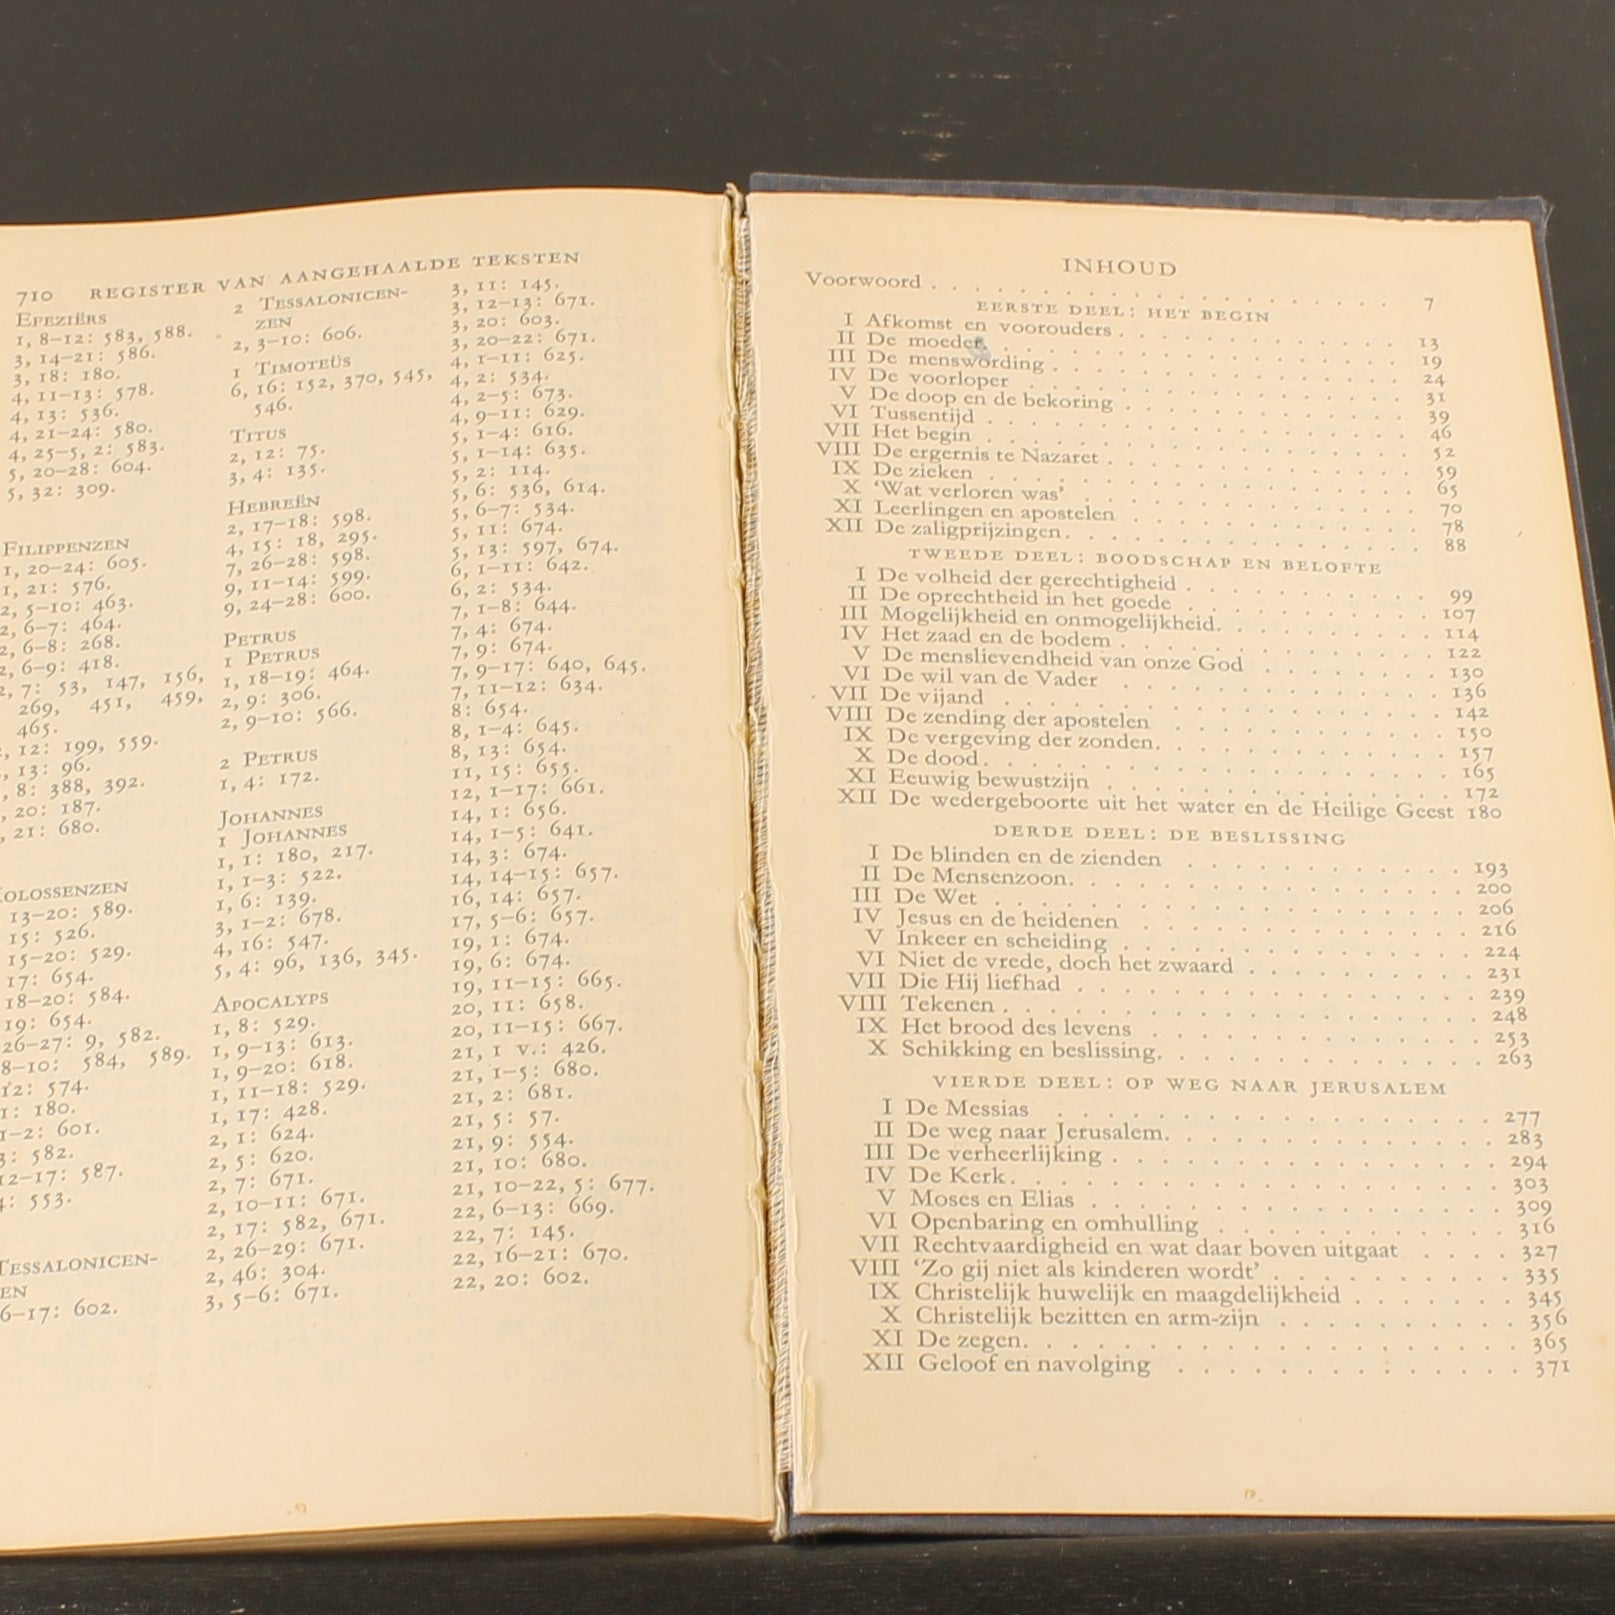 710 REGISTER VAN AANGEHAALDE TEKSTEN
EFEZIËRS
1, 8–12: 583, 588.
3, 14–21: 586.
3, 18: 180.
4, 11–13: 578.
4, 13: 536.
4, 21–24: 580.
4, 25–5, 2: 583.
5, 20–28: 604.
5, 32: 309.
FILIPPENZEN
1, 20–24: 605.
1, 21: 576.
2, 5–10: 463.
2, 6–7: 464.
2, 6–8: 268.
2, 6–9: 418.
2, 7: 53, 147, 156,
269, 451, 459,
465.
12: 199, 559.
13: 96.
8: 388, 392.
20: 187.
21: 680.
OLOSSENZEN
13–20: 589.
15: 526.
15–20: 529.
17: 654.
18–20: 584.
19: 654.
26–27: 9, 582.
8–10: 584, 589.
12: 574.
1: 180.
1–2: 601.
3: 582.
12–17: 587.
4: 553.
TESSALONICEN-
EN
6–17: 602.
2 TESSALONICEN-
ZEN
2, 3–10: 606.
1 TIMOTEÜS
6, 16: 152, 370, 545,
546.
TITUS
2, 12: 75.
3, 4: 135.
HEBREËN
2, 17–18: 598.
4, 15: 18, 295.
7, 26–28: 598.
9, 11–14: 599.
9, 24–28: 600.
PETRUS
1 PETRUS
1, 18–19: 464.
2, 9: 306.
2, 9–10: 566.
2 PETRUS
1, 4: 172.
JOHANNES
1 JOHANNES
1, 1: 180, 217.
1, 1–3: 522.
1, 6: 139.
3, 1–2: 678.
4, 16: 547.
5, 4: 96, 136, 345.
APOCALYPS
1, 8: 529.
1, 9–13: 613.
1, 9–20: 618.
1, 11–18: 529.
1, 17: 428.
2, 1: 624.
2, 5: 620.
2, 7: 671.
2, 10–11: 671.
2, 17: 582, 671.
2, 26–29: 671.
2, 46: 304.
3, 5–6: 671.
3, 11: 145.
3, 12–13: 671.
3, 20: 603.
3, 20–22: 671.
4, 1–11: 625.
4, 2: 534.
4, 2–5: 673.
4, 9–11: 629.
5, 1–4: 616.
5, 1–14: 635.
5, 2: 114.
5, 6: 536, 614.
5, 6–7: 534.
5, 11: 674.
5, 13: 597, 674.
6, 1–11: 642.
6, 2: 534.
7, 1–8: 644.
7, 4: 674.
7, 9: 674.
7, 9–17: 640, 645.
7, 11–12: 634.
8: 654.
8, 1–4: 645.
8, 13: 654.
11, 15: 655.
12, 1–17: 661.
14, 1: 656.
14, 1–5: 641.
14, 3: 674.
14, 14–15: 657.
16, 14: 657.
17, 5–6: 657.
19, 1: 674.
19, 6: 674.
19, 11–15: 665.
20, 11: 658.
20, 11–15: 667.
21, 1 v.: 426.
21, 1–5: 680.
21, 2: 681.
21, 5: 57.
21, 9: 554.
21, 10: 680.
21, 10–22, 5: 677.
22, 6–13: 669.
22, 7: 145.
22, 16–21: 670.
22, 20: 602.
INHOUD
Voorwoord . . . 7
EERSTE DEEL: HET BEGIN
I Afkomst en voorouders . . . 13
II De moeder . . . 19
III De menswording . . . 24
IV De voorloper . . . 31
V De doop en de bekoring . . . 39
VI Tussentijd . . . 46
VII Het begin . . . 52
VIII De ergernis te Nazaret . . . 59
IX De zieken . . . 65
X ‘Wat verloren was’ . . . 70
XI Leerlingen en apostelen . . . 78
XII De zaligprijzingen . . . 88
TWEEDE DEEL: BOODSCHAP EN BELOFTE
I De volheid der gerechtigheid . . . 99
II De oprechtheid in het goede . . . 107
III Mogelijkheid en onmogelijkheid . . . 114
IV Het zaad en de bodem . . . 122
V De menslievendheid van onze God . . . 130
VI De wil van de Vader . . . 136
VII De vijand . . . 142
VIII De zending der apostelen . . . 150
IX De vergeving der zonden . . . 157
X De dood . . . 165
XI Eeuwig bewustzijn . . . 172
XII De wedergeboorte uit het water en de Heilige Geest 180
DERDE DEEL: DE BESLISSING
I De blinden en de zienden . . . 193
II De Mensenzoon . . . 200
III De Wet . . . 206
IV Jesus en de heidenen . . . 216
V Inkeer en scheiding . . . 224
VI Niet de vrede, doch het zwaard . . . 231
VII Die Hij liefhad . . . 239
VIII Tekenen . . . 248
IX Het brood des levens . . . 253
X Schikking en beslissing . . . 263
VIERDE DEEL: OP WEG NAAR JERUSALEM
I De Messias . . . 277
II De weg naar Jerusalem . . . 283
III De verheerlijking . . . 294
IV De Kerk . . . 303
V Moses en Elias . . . 309
VI Openbaring en omhulling . . . 316
VII Rechtvaardigheid en wat daar boven uitgaat . . . 327
VIII ‘Zo gij niet als kinderen wordt’ . . . 335
IX Christelijk huwelijk en maagdelijkheid . . . 345
X Christelijk bezitten en arm-zijn . . . 356
XI De zegen . . . 365
XII Geloof en navolging . . . 371